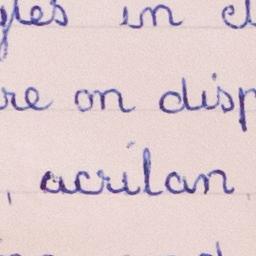 yles in cl
re on disp
, acrilan,